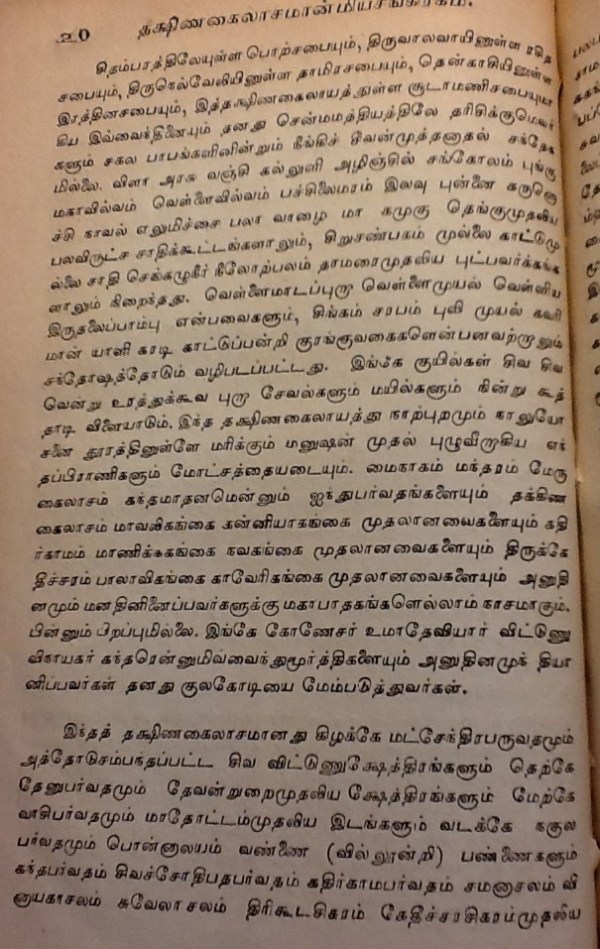 ௨0 தக்ஷிணகைலாசமான்மியசங்கிரகம்.
சிதம்பரத்திலேயுள்ள பொற்சபையும், திருவாலவாயினுள்ள ரசித
சபையும், திருநெல்வேலியினுள்ள தாமிரசபையும், தென்காசியினுள்ள
இரத்தினசபையும், இத்தக்ஷிணகைலாயத்துள்ள சூடாமணிசபையுமா
கிய இவ்வைந்தினையும் தனது சென்மமத்தியத்திலே தரிசிக்குமெவர்
களும் சகல பாபங்களினின்றும் நீங்கிச் சீவன்முத்தனாதல் சந்தேக
மில்லை. விளா அரசு வஞ்சி கல்லுளி அழிஞ்சில் சங்கோலம் புங்கு
மகாவில்வம் வெள்ளைவில்வம் பச்சிலைமரம் இலவு புன்னை கருனொ
ச்சி நாவல் எலுமிச்சை பலா வாழை மா கமுகு தெங்குமுதலிய
பலவிருட்ச சாதிக்கூட்டங்களாலும், சிறுசண்பகம் முல்லை காட்டுமு
ல்லை சாதி செங்கழுநீர் நீலோற்பலம் தாமரைமுதலிய புட்பவர்க்கங்க
ளாலும் நிறைந்தது. வெள்ளைமாடப்புறா வெள்ளைமுயல் வெள்ளிய
இருதலைப்பாம்பு என்பவைகளும், சிங்கம் சரபம் புலி முயல் கவரி
மான் யாளி கரடி காட்டுப்பன்றி குரங்குவகைகளென்பனவற்றாலும்
சந்தோஷத்தோடும் வழிபடப்பட்டது. இங்கே குயில்கள் சிவ சிவ
வென்று உரத்துக்கூவ புறா சேவல்களும் மயில்களும் நின்று கூத்
தாடி விளையாடும். இந்த தக்ஷிணகைலாயத்து நாற்புறமும் நாலுயோ
சனை தூரத்தினுள்ளே மரிக்கும் மனுஷன் முதல் புழுவீறாகிய எந்
தப்பிராணிகளும் மோட்சத்தையடையும். மைநாகம் மந்தரம் மேரு
கைலாசம் கந்தமாதனமென்னும் ஐந்துபர்வதங்களையும் தக்கிண
கைலாசம் மாவலிகங்கை கன்னியாகங்கை முதலானவைகளையும் கதி
ர்காமம் மாணிக்ககங்கை நவகங்கை முதலானவைகளையும் திருக்கே
தீச்சரம் பாலாவிகங்கை காவேரிகங்கை முதலானவைகளையும் அனுதி
னமும் மனதினினைப்பவர்களுக்கு மகாபாதகங்களெல்லாம் நாசமாகும்.
பின்னும் பிறப்புமில்லை. இங்கே கோணேசர் உமாதேவியார் விட்டுணு
விநாயகர் கந்தரென்னுமிவ்வைந்துமூர்த்திகளையும் அனுதினமுந் தியா
னிப்பவர்கள் தனது குலகோடியை மேம்படுத்துவர்கள்.
இந்தத் தக்ஷிணகைலாசமானது கிழக்கே மட்சேந்திரபருவதமும்
அத்தோடுசம்பந்தப்பட்ட சிவ விட்டுணுக்ஷேத்திரங்களும் தெற்கே
தேனுபர்வதமும் தேவன்றுறைமுதலிய க்ஷேத்திரங்களும் மேற்கே
வாசிபர்வதமும் மாதோட்டம்முதலிய இடங்களும் வடக்கே நகுல
பர்வதமும் பொன்னாலயம் வண்ணை (வில்லூன்றி) பண்ணைகளும்
கந்தபர்வதம் சிவச்சோதிபதபர்வதம் கதிர்காமபர்வதம் சமனாசலம் வி
னாயகாசலம் சுவேலாசலம் திரிகூடசிகரம் கேதீச்சரசிகரம்முதலிய